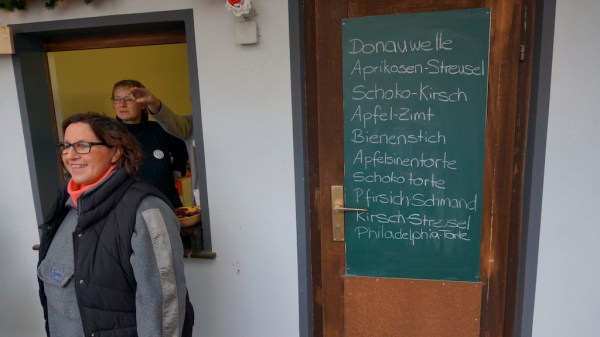 Donauwelle
Aprikosen-Streusel
Schoko-Kirsch
Apfel-Zimt
Bienenstich
Apfelsinentorte
Schokotorte
Pfirsich-Schmand
Kirsch-Streusel
Philadelphia-Torte